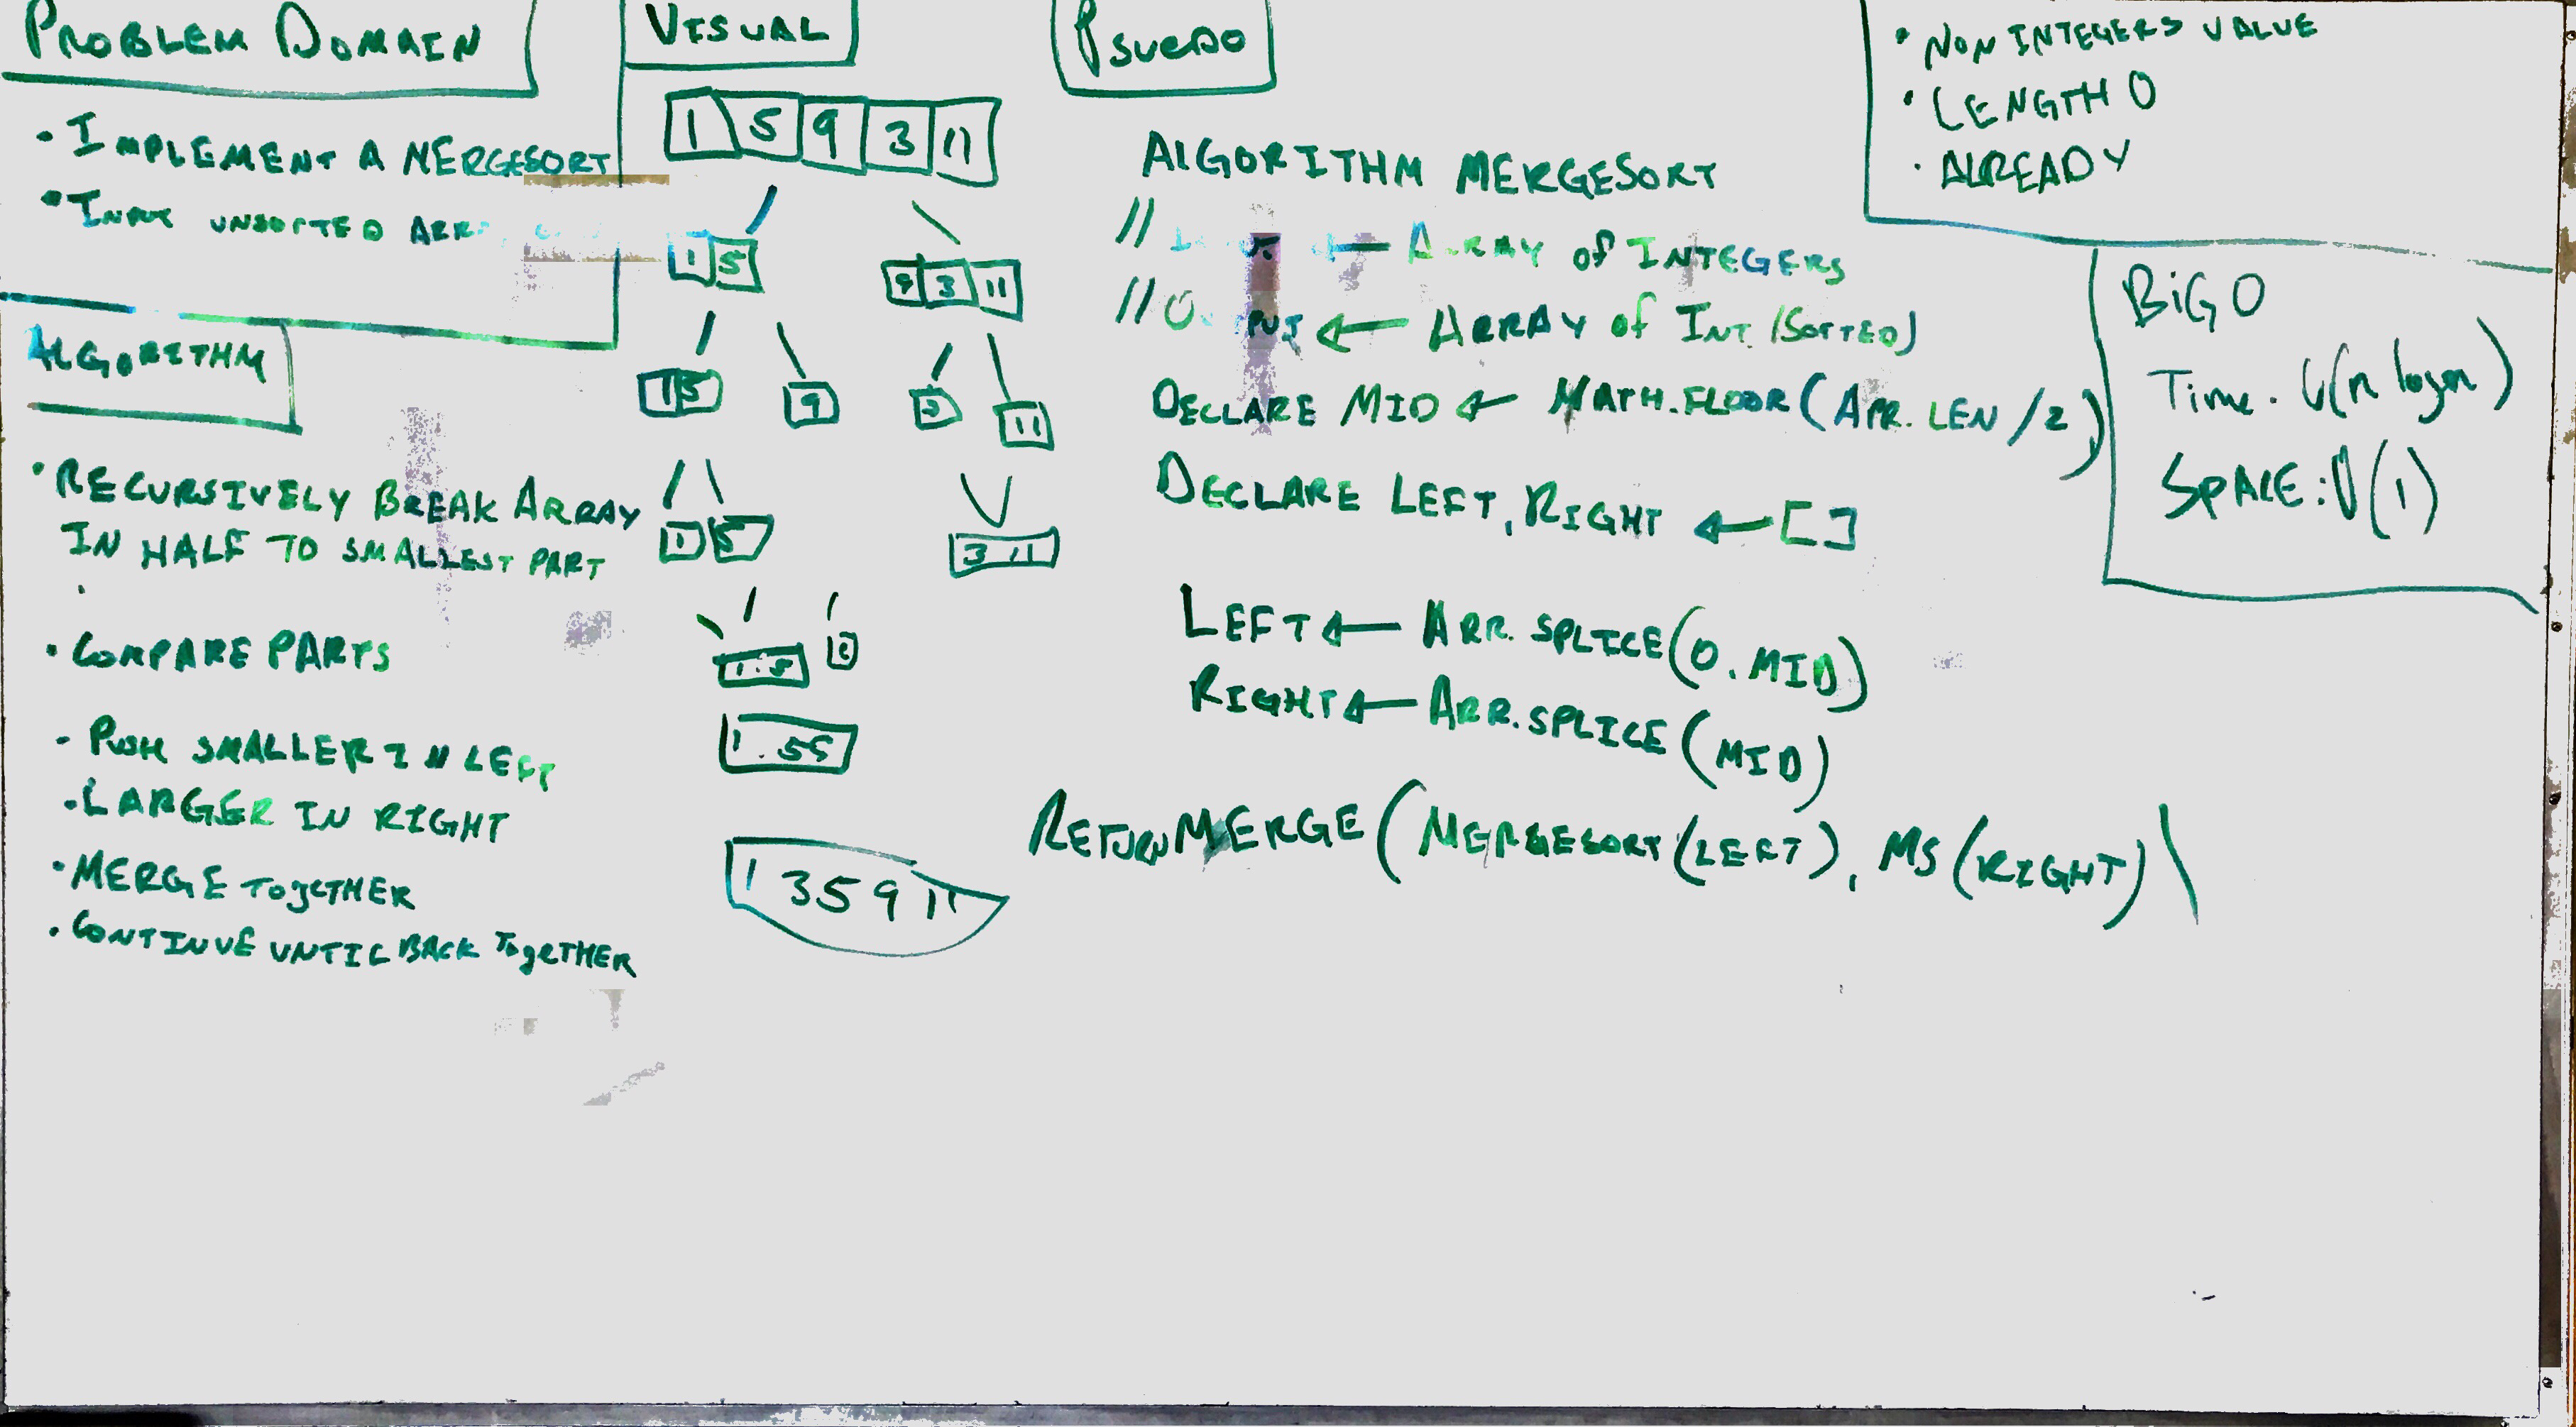 PROBLEM DOMAIN
• IMPLEMENT A MERGESORT
• INPUT UNSORTED ARR
ALGORITHM
• RECURSIVELY BREAK ARRAY
IN HALF TO SMALLEST PART
• COMPARE PARTS
- PUSH SMALLER IN LEFT
- LARGER IN RIGHT
• MERGE TOgETHER
• CONTINUE UNTIL BACK TOgETHER
VISUAL
1 5 9 3 11
1 5
9 3 11
1 5
9
3
11
1 5
3 11
1 5
1 3 5 9 11
PSUEDO
ALGORITHM MERGESORT
// ← ARRAY of INTEGERS
// OUTPUT ← ARRAY of INT (SORTED)
DECLARE MID ← MATH.FLOOR(ARR.LEN/2)
DECLARE LEFT, RIGHT ← []
LEFT ← ARR.SPLICE(0, MID)
RIGHT ← ARR.SPLICE(MID)
RETURN MERGE(MERGESORT(LEFT), MS(RIGHT))
• NON INTEGERS VALUE
• LENGTH 0
• ALREADY
BiG O
Time: O(n logn)
SPACE: O(1)